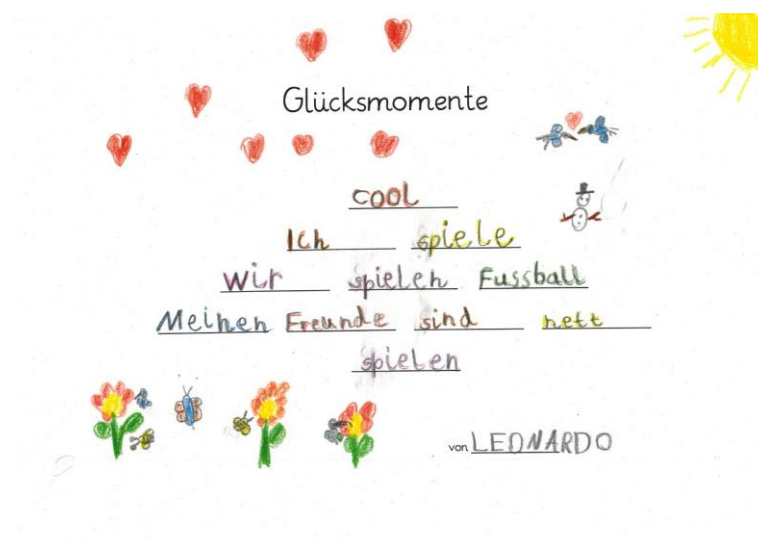 Glücksmomente
cool
Ich spiele
Wir spielen Fussball
Meinen Freunde sind nett
spielen
von LEONARDO